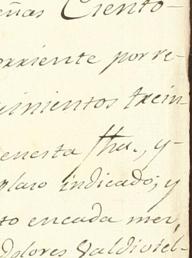 eñas Ciento-
orriente por re-
uinientos trein
enesta fha., y-
plazo indicado; y
to encada mes,
Dolores Valdiviel-